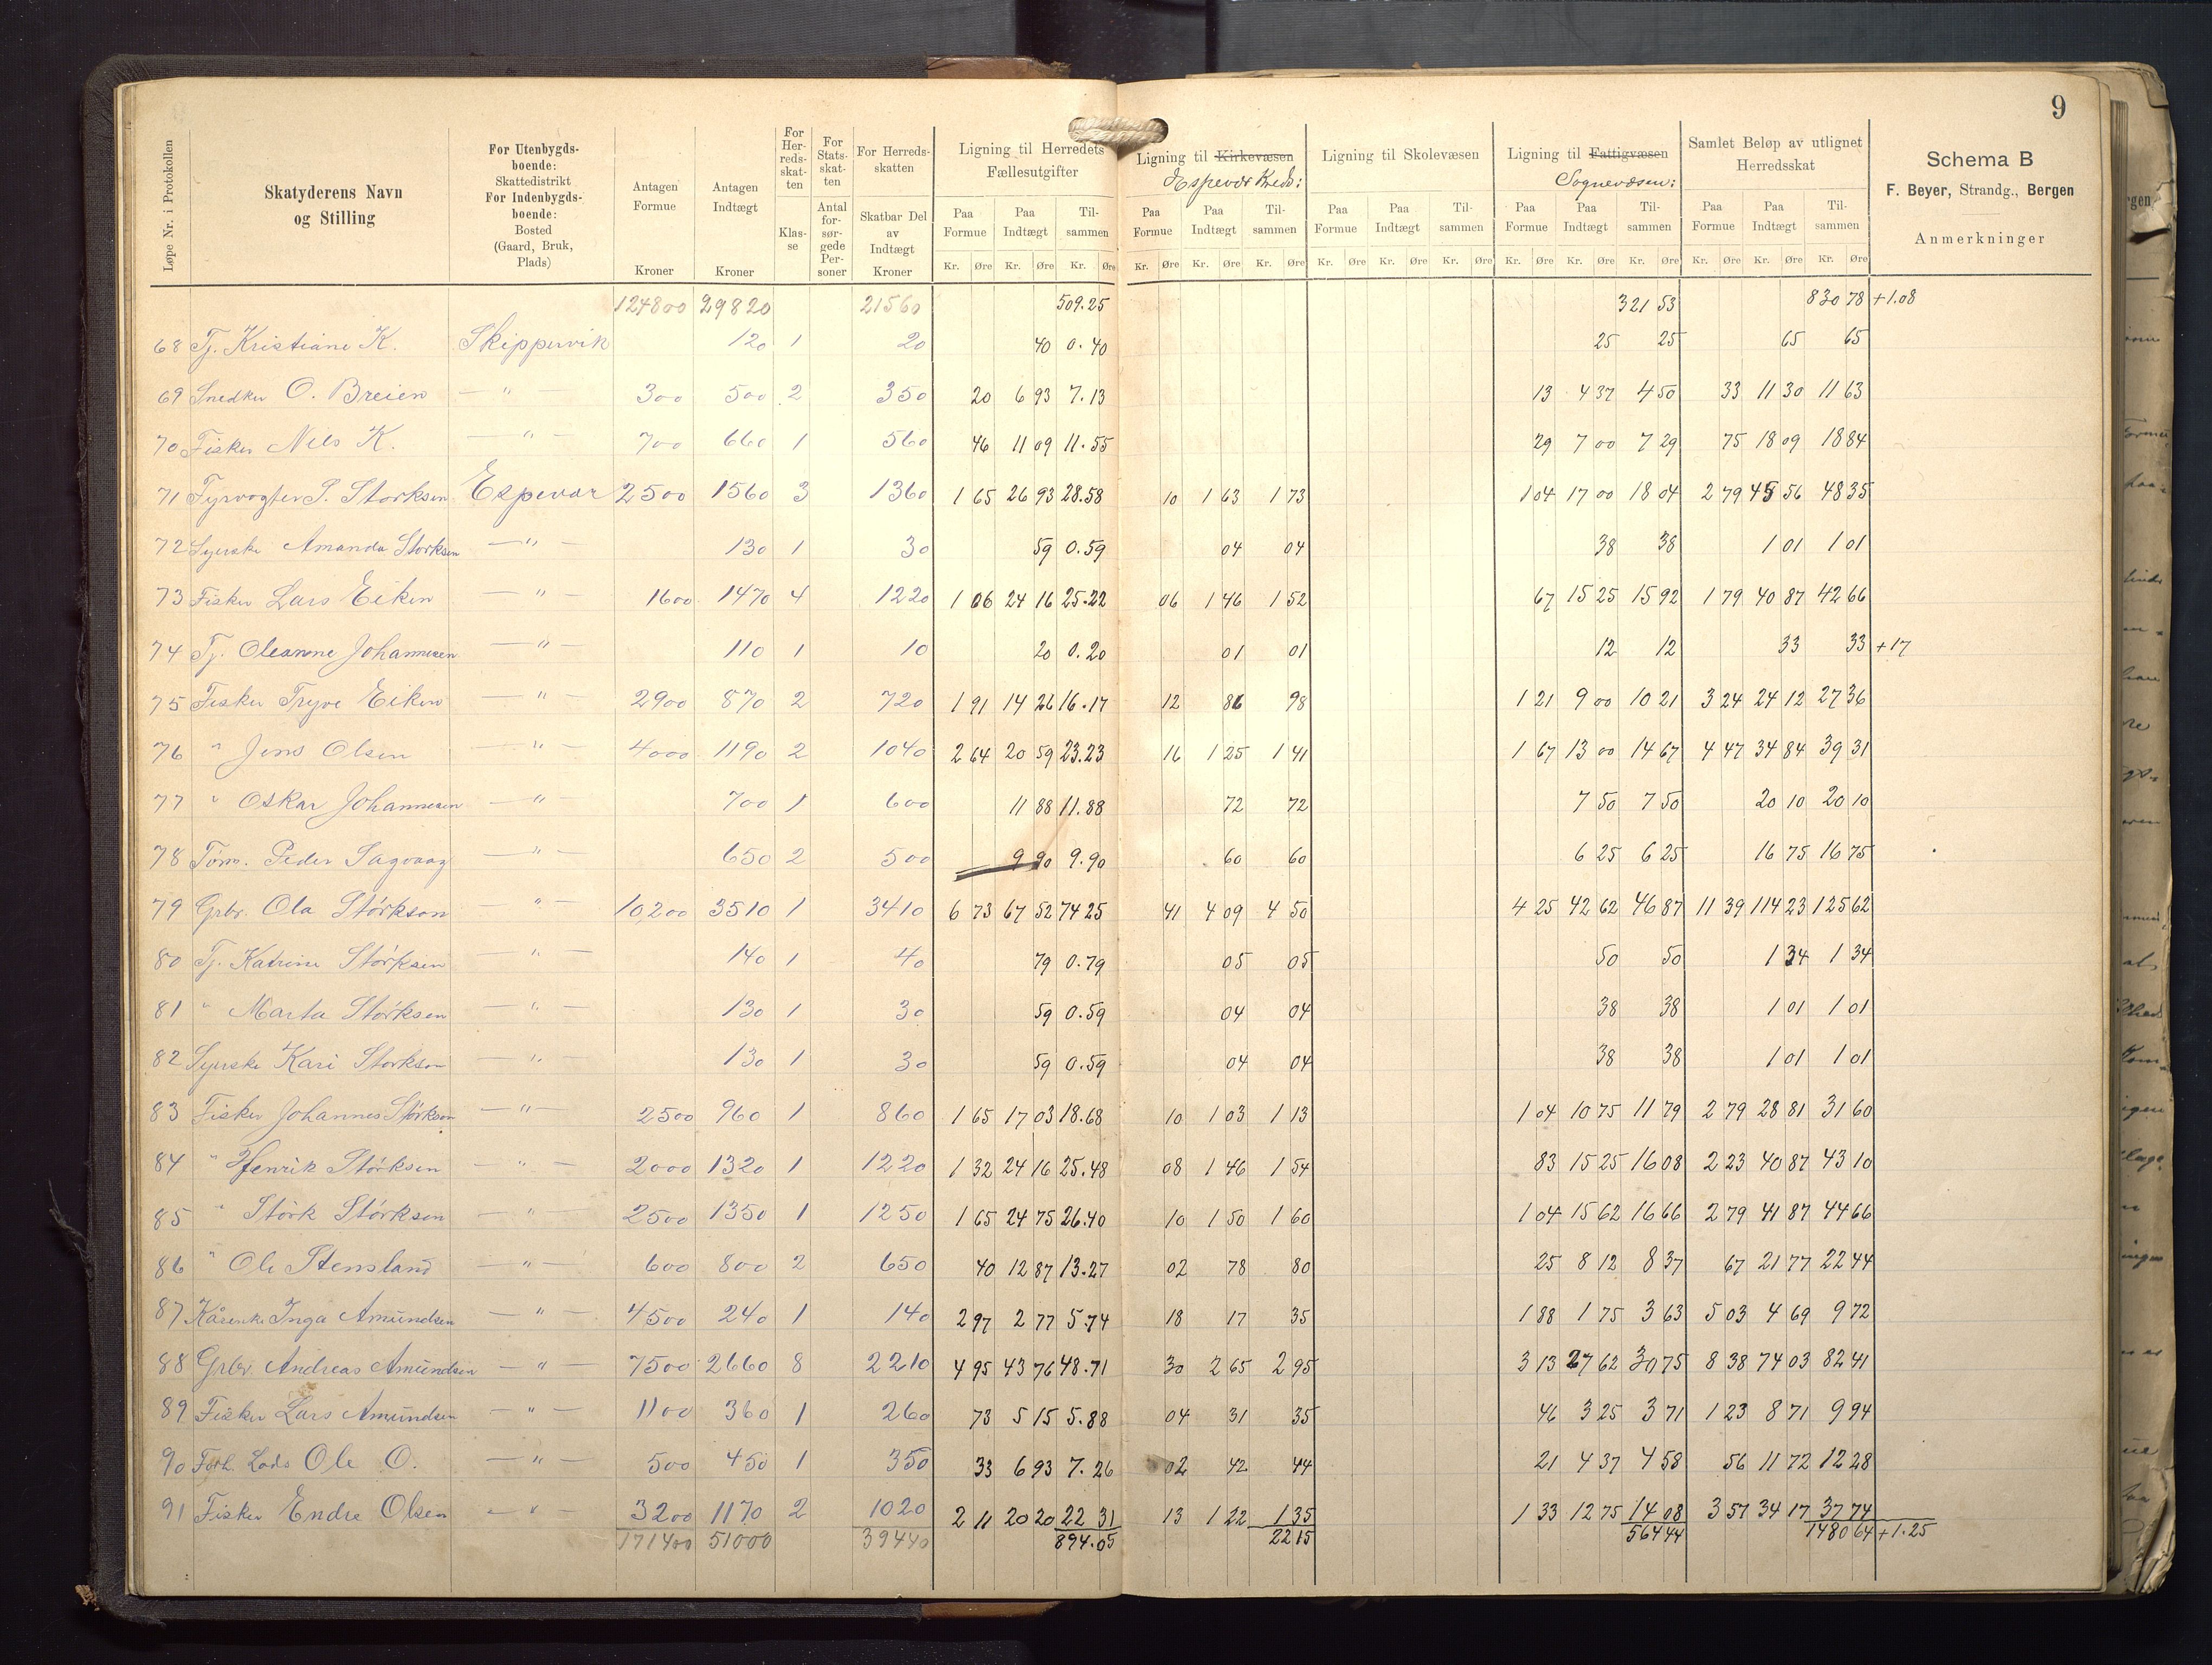 9
Løpe Nr. i Protokollen
Skatyderens Navn og Stilling
For Utenbygdsboende: Skattedistrikt For Indenbygdsboende: Bosted (Gaard, Bruk, Plads)
Antagen Formue Kroner
Antagen Indtægt Kroner
For Herredsskatten Klasse
For Statsskatten Antal forsørgede Personer
For Herredsskatten Skatbar Del av Indtægt Kroner
Ligning til Herredets Fællesutgifter
Ligning til Kirkevæsen Espevær Kreds:
Ligning til Skolevæsen
Ligning til Fattigvæsen Sognevæsen:
Samlet Beløp av utlignet Herredsskat
Paa Formue Paa Indtægt Tilsammen Paa Formue Paa Indtægt Tilsammen Paa Formue Paa Indtægt Tilsammen Paa Formue Paa Indtægt Tilsammen Paa Formue Paa Indtægt Tilsammen
Kr. Øre Kr. Øre Kr. Øre Kr. Øre Kr. Øre Kr. Øre Kr. Øre Kr. Øre Kr. Øre Kr. Øre Kr. Øre Kr. Øre Kr. Øre Kr. Øre Kr. Øre
Schema B
F. Beyer, Strandg., Bergen
Anmerkninger
124800 29820 21560 509.25 321 53 830 78 +1.08
68 Tj. Kristiane K. Skippervik 120 1 20 40 0.40 25 25 65 65
69 Snedker O. Breien — " — 300 500 2 350 20 6 93 7.13 13 4 37 4 50 33 11 30 11 63
70 Fisker Nils K. — " — 700 660 1 560 46 11 09 11.55 29 7 00 7 29 75 18 09 18 84
71 Fyrvogter S. Storksen Espevær 2500 1560 3 1360 1 65 26 93 28.58 10 1 63 1 73 1 04 17 00 18 04 2 79 45 56 48 35
72 Syerske Amanda Storksen — " — 130 1 30 59 0.59 04 04 38 38 1 01 1 01
73 Fisker Lars Eiken — " — 1600 1470 4 1220 1 06 24 16 25.22 06 1 46 1 52 67 15 25 15 92 1 79 40 87 42 66
74 Tj. Oleanne Johannesen — " — 110 1 10 20 0.20 01 01 12 12 33 33 +17
75 Fisker Tryve Eiken — " — 2900 870 2 720 1 91 14 26 16.17 12 86 98 1 21 9 00 10 21 3 24 24 12 27 36
76 " Jens Olsen — " — 4000 1190 2 1040 2 64 20 59 23.23 16 1 25 1 41 1 67 13 00 14 67 4 47 34 84 39 31
77 " Oskar Johannesen — " — 700 1 600 11 88 11.88 72 72 7 50 7 50 20 10 20 10
78 Tøm. Peder Sagvaag — " — 650 2 500 9 90 9.90 60 60 6 25 6 25 16 75 16 75
79 Grbr. Ola Størkson — " — 10200 3510 1 3410 6 73 67 52 74 25 41 4 09 4 50 4 25 42 62 46 87 11 39 114 23 125 62
80 Tj. Katrine Størksen — " — 140 1 40 79 0.79 05 05 50 50 1 34 1 34
81 " Marta Størksen — " — 130 1 30 59 0.59 04 04 38 38 1 01 1 01
82 Syerske Kari Storkson — " — 130 1 30 59 0.59 04 04 38 38 1 01 1 01
83 Fisker Johannes Størkson — " — 2500 960 1 860 1 65 17 03 18.68 10 1 03 1 13 1 04 10 75 11 79 2 79 28 81 31 60
84 " Henrik Størksen — " — 2000 1320 1 1220 1 32 24 16 25.48 08 1 46 1 54 83 15 25 16 08 2 23 40 87 43 10
85 " Störk Størksen — " — 2500 1350 1 1250 1 65 24 75 26.40 10 1 50 1 60 1 04 15 62 16 66 2 79 41 87 44 66
86 " Ole Stensland — " — 600 800 2 650 40 12 87 13.27 02 78 80 25 8 12 8 37 67 21 77 22 44
87 Inga Amundsen — " — 4500 240 1 140 2 97 2 77 5.74 18 17 35 1 88 1 75 3 63 5 03 4 69 9 72
88 Grbr. Andreas Amundsen — " — 7500 2660 8 2210 4 95 43 76 48.71 30 2 65 2 95 3 13 27 62 30 75 8 38 74 03 82 41
89 Fisker Lars Amundsen — " — 1100 360 1 260 73 5 15 5.88 04 31 35 46 3 25 3 71 1 23 8 71 9 94
90 Forh. Lods Ole O. — " — 500 450 1 350 33 6 93 7.26 02 42 44 21 4 37 4 58 56 11 72 12 28
91 Fisker Endre Olsen — " — 3200 1170 2 1020 2 11 20 20 22 31 13 1 22 1 35 1 33 12 75 14 08 3 57 34 17 37 74
171400 51000 39440 894.05 22 15 564 44 1480 64 +1.25